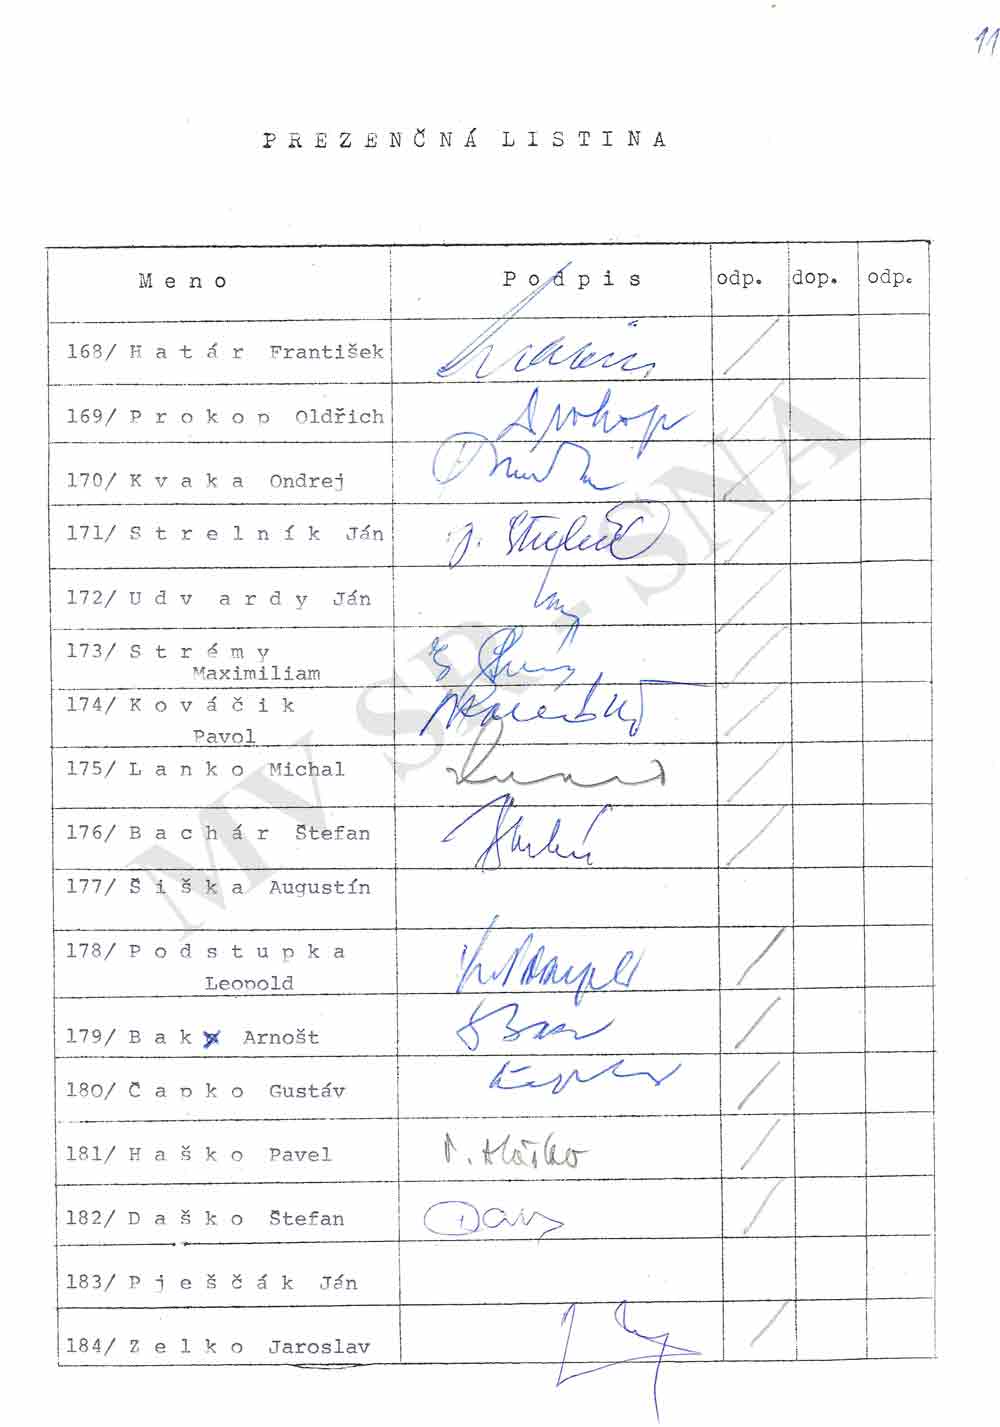 11
PREZENČNÁ LISTINA
Meno Podpis odp. dop. odp.
168/ Határ František
169/ Prokop Oldřich Prokop
170/ Kvaka Ondrej
171/ Strelník Ján J.
172/ Udvardy Ján
173/ Strémy
Maximiliam
174/ Kováčik
Pavol
175/ Lanko Michal
176/ Bachár Štefan
177/ Šiška Augustín
178/ Podstupka
Leopold
179/ Bak Arnošt
180/ Čapko Gustáv
181/ Haško Pavel P. Haško
182/ Daško Štefan
183/ Pješčák Ján
184/ Zelko Jaroslav
MV SR - SNA